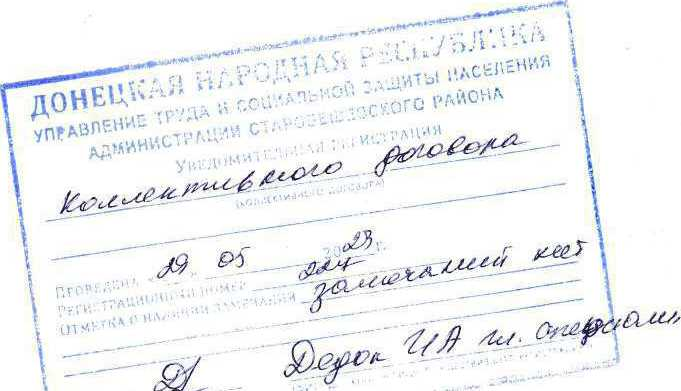 ДОНЕЦКАЯ НАРОДНАЯ РЕСПУБЛИКА
УПРАВЛЕНИЕ ТРУДА И СОЦИАЛЬНОЙ ЗАЩИТЫ НАСЕЛЕНИЯ
АДМИНИСТРАЦИИ СТАРОБЕШЕВСКОГО РАЙОНА
УВЕДОМИТЕЛЬНАЯ РЕГИСТРАЦИЯ
коллективного договора
(коллективного договора)
ПРОВЕДЕНА «29» 05 2023 г.
РЕГИСТРАЦИОННЫЙ НОМЕР 227
ОТМЕТКА О НАЛИЧИИ ЗАМЕЧАНИЙ замечаний нет
И.А. гл.